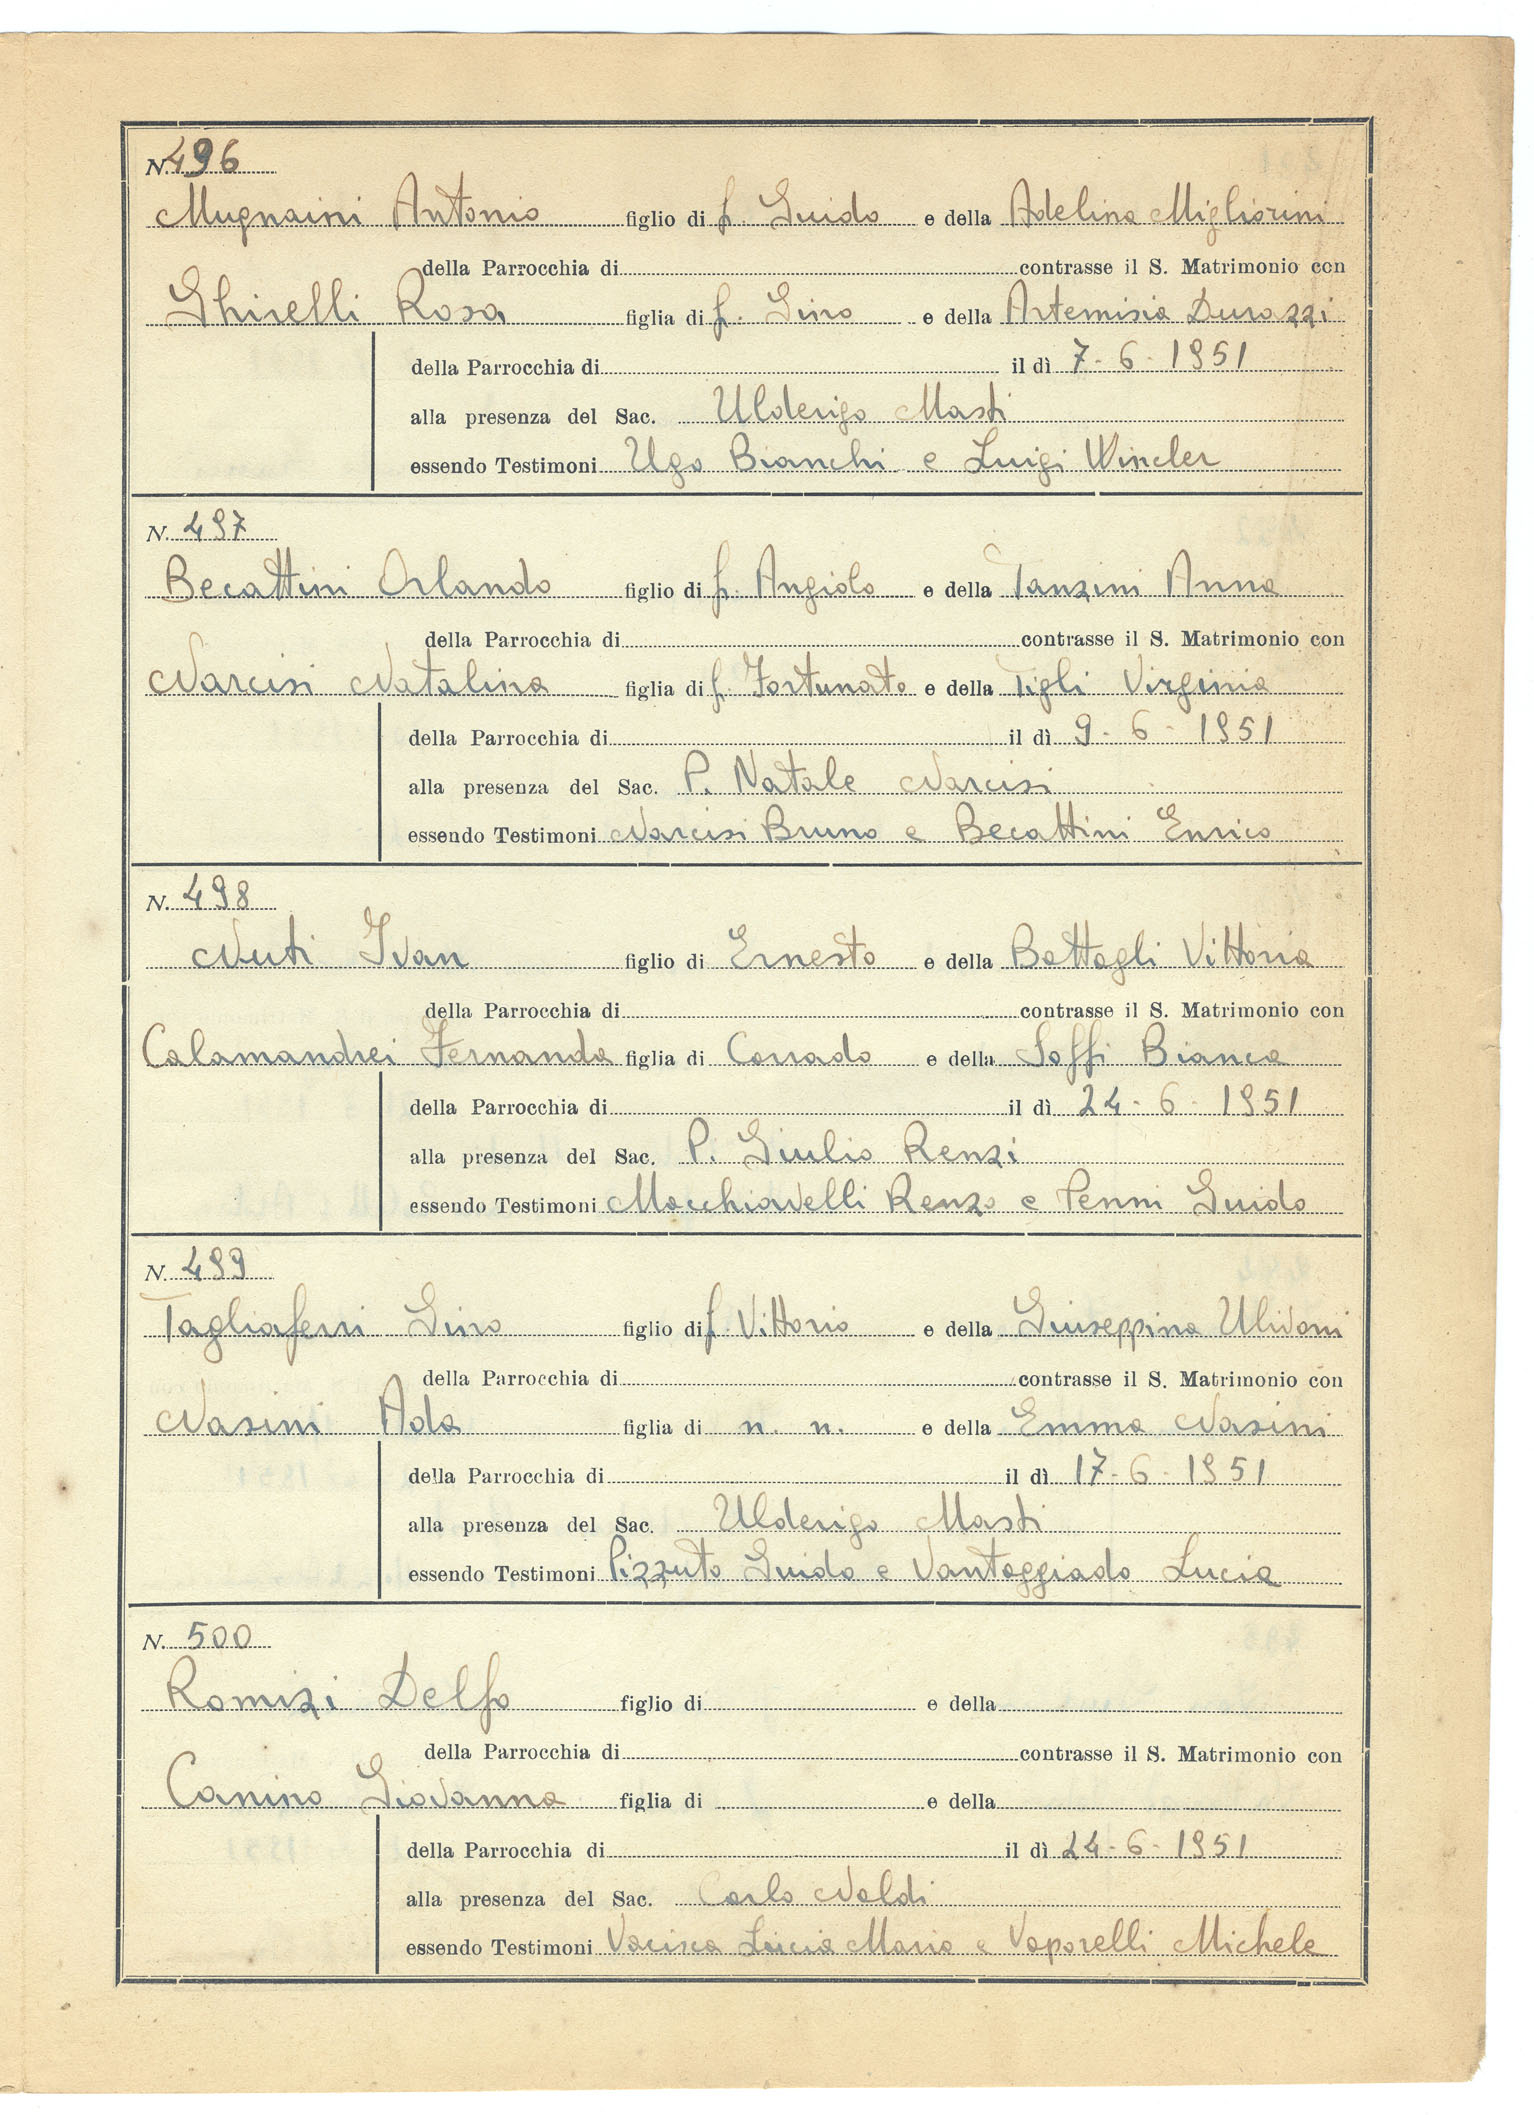 N. 496
Mugnaini Antonio figlio di f. Guido e della Adelina Migliorini
della Parrocchia di contrasse il S. Matrimonio con
Ghirelli Rosa figlia di f. Gino e della Artemisia Durazzi
della Parrocchia di il dì 7-6-1951
alla presenza del Sac. Ulderigo Masti
essendo Testimoni Ugo Bianchi e Luigi Wincler
N. 497
Becattini Orlando figlio di f. Angiolo e della Tanzini Anna
della Parrocchia di contrasse il S. Matrimonio con
Narcisi Natalina figlia di f. Fortunato e della Tigli Virginia
della Parrocchia di il dì 9-6-1951
alla presenza del Sac. P. Natale Narcisi
essendo Testimoni Narcisi Bruno e Becattini Enrico
N. 498
Nuti Ivan figlio di Ernesto e della Battagli Vittoria
della Parrocchia di contrasse il S. Matrimonio con
Calamandrei Fernanda figlia di Corrado e della Soffi Bianca
della Parrocchia di il dì 24-6-1951
alla presenza del Sac. P. Giulio Renzi
essendo Testimoni Macchiavelli Renzo e Penni Guido
N. 499
Tagliaferri Gino figlio di f. Vittorio e della Giuseppina Ulivoni
della Parrocchia di contrasse il S. Matrimonio con
Nasini Ada figlia di n. n. e della Emma Nasini
della Parrocchia di il dì 17-6-1951
alla presenza del Sac. Ulderigo Masti
essendo Testimoni Pizzuto Guido e Vantaggiado Lucia
N. 500
Romizi Delfo figlio di e della
della Parrocchia di contrasse il S. Matrimonio con
Canino Giovanna figlia di e della
della Parrocchia di il dì 24-6-1951
alla presenza del Sac. Carlo Naldi
essendo Testimoni Lucia Maria e Vaporelli Michele